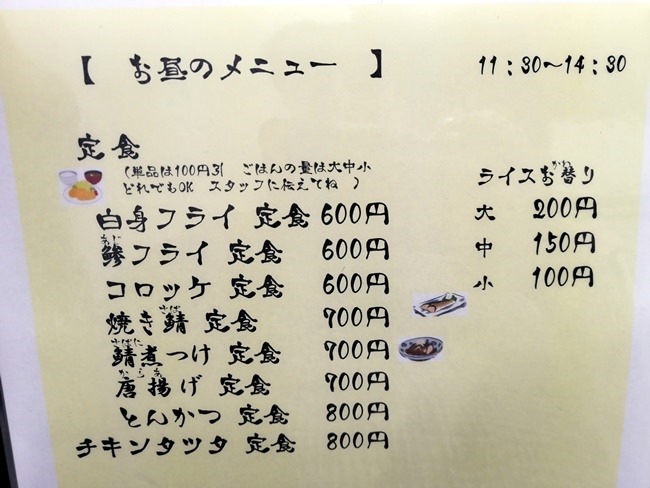 【 お昼のメニュー 】 11:30〜14:30
定食
(単品は100円引 ごはんの量は大中小
どれでもOK スタッフに伝えてね )
白身フライ 定食 600円
あじ
鯵フライ 定食 600円
コロッケ 定食 600円
さば
焼き鯖 定食 700円
さばに
鯖煮つけ 定食 700円
からあ
唐揚げ 定食 700円
とんかつ 定食 800円
チキンタツタ 定食 800円
かわ
ライスお替り
大 200円
中 150円
小 100円